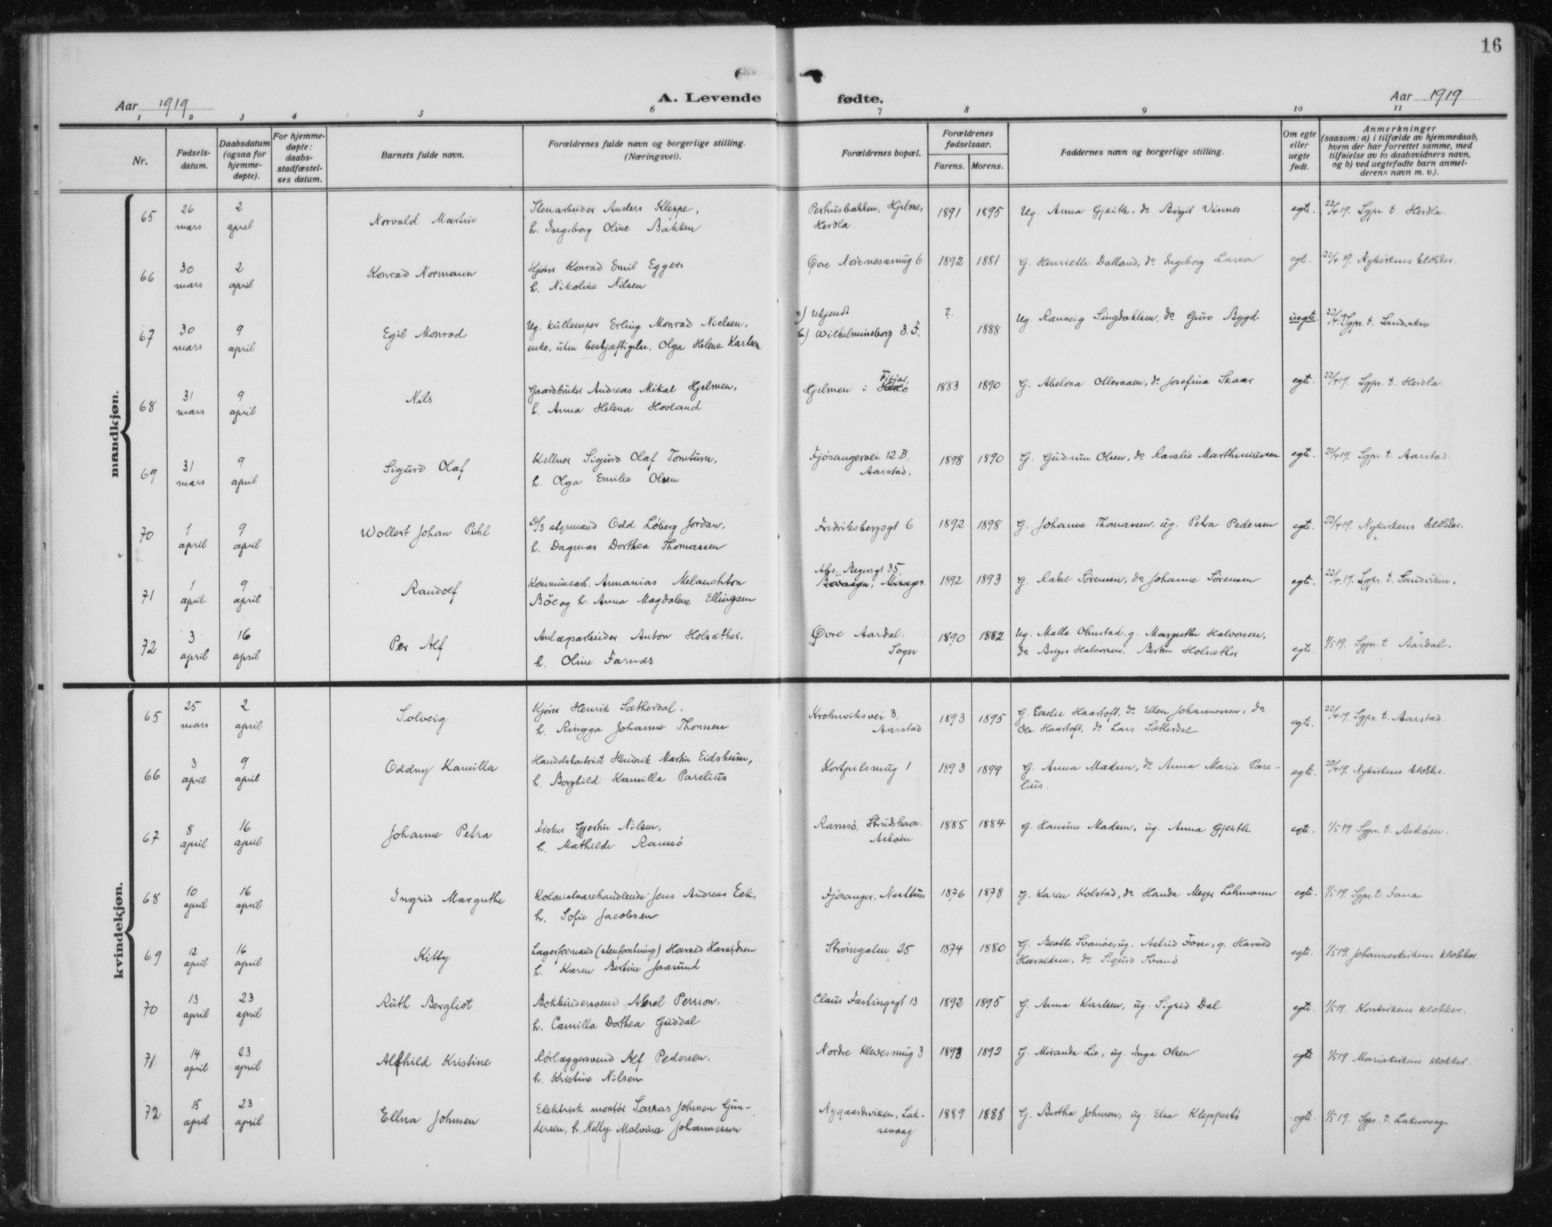 16
Aar 1919
A. Levende fødte.
Aar 1919
1 2 3 4 5 6 7 8 9 10 11
Nr.
Fødsels-
datum.
Daabsdatum
(ogsaa for
hjemme-
døpte).
For hjemme-
døpte:
daabs-
stadfæstel-
ses datum.
Barnets fulde navn.
Forældrenes fulde navn og borgerlige stilling.
(Næringsvei).
Forældrenes bopæl.
Forældrenes
fødselsaar.
Farens. Morens.
Faddernes navn og borgerlige stilling.
Om egte
eller
uegte
født.
Anmerkninger
(saasom: a) i tilfælde av hjemmedaab,
hvem der har forrettet samme, med
tilføielse av to daabsvidners navn,
og b) ved uegtefødte barn anmel-
derens navn m. v.).
mandkjøn.
65 26 mars 2 april Norvald Martin Stenarbeider Anders Kleppe, 1891 1895 Ug. Anna Gjeitle, do Birgit Vinnes egte. 22/4 19. Sgpr. t. Herdla
h. Ingeborg Oline Bakken Herdla
66 30 mars 2 april Konrad Normann Kjører Konrad Emil Eggers Øvre Nordnessmug 6 1892 1881 G. Henriette Dalland, do Ingeborg Larsen egte. 22/4 19. Nykirkens klokker.
h. Nikoline Nilsen
67 30 mars 9 april Egil Monrad Ug. kullemper Erling Monrad Nielsen, a) Ukjendt ? Ug. Ranveig Singdahlsen, do Guro Bygd uegte 22/4 19 Sgpr. t. Sandviken
enke, uten beskjæftigelse, Olga Helene Karlsen b) Wilhelmineborg 3. F. 1888
68 31 mars 9 april Nils Gaardbruker Andreas Mikal Hjelmen, Hjelmen i Fitjar 1883 1890 G. Abelona Ollersaaen, do Josefina Skaar egte. 22/4 19. Sgpr. t. Herdla
h. Anna Helena Hovland
69 31 mars 9 april Sigurd Olaf Kellner Sigurd Olaf Tomturn, Fjøsangervei 12 B, 1898 1890 G. Gudrun Olsen, do Ravalie Marthinussen egte. 22/4 19. Sgpr. t. Aarstad
h. Olga Emilie Olsen Aarstad.
70 1 april 9 april Wollert Johan Pihl D/S styrmand Odd Løberg Jordan, Fredriksbergsgt 6 1892 1898 G. Johanne Thomassen, ug. Petra Pedersen egte. 22/4 19. Nykirkens klokker.
h. Dagmar Dorthea Thomassen
71 1 april 9 april Randolf Kommunearb. Annanias Melanchton 1892 1893 G. Rakel Sørensen, do Johanne Sørensen egte. 22/4 19. Sgpr. t. Sandviken.
Bøe og h. Anna Magdalene Ellingsen
72 3 april 16 april Per Alf Anlægsarbeider Anton Holsæther, Øvre Aardal. 1890 1882 Ug. Malla Ohnstad, g. Margrethe Halvorsen, egte. 1/5 19. Sgpr. t. Aardal.
h. Oline Farnæs Sogn do Birger Halvorsen, Bertin Holsæther
kvindekjøn.
65 25 mars 2 april Solveig Kjører Henrik Sætherdal, Krohnviksvei 8, 1893 1895 G. Haartoft, do Ellen Johannessen, do egte. 22/4 19. Sgpr. t. Aarstad.
h. Ringga Johanne Thomsen Aarstad Ole Haartoft, do Lars Sætherdal
66 3 april 9 april Oddny Kamilla Handelskartist Hendrik Martin Eidsheim, Kortpilsmug 1 1893 1899 G. Anna Madsen, do Anna Marie Pare- egte. 22/4 19. Nykirkens klokker.
h. Borghild Kamilla Parelius lius.
67 8 april 16 april Johanne Petra Fisker Gjertin Nilsen, Ramsø, Strudshavn 1885 1884 G. Hansine Madsen, ug. Anna Gjertle egte. 1/5 19 Sgpr. t. Askøen.
h. Mathilde Ramsø Askøen
68 10 april 16 april Ingrid Margrethe Kolonialvarehandlende Jens Andreas Eek, Fjøsanger, Nordtun 1876 1878 G. Karen Kolstad, do Handa Meyer Lehmann egte. 1/5 19. Sgpr. t. Fana
h. Sofie Jacobsen
69 12 april 16 april Kitty Lagerformand (stenforretning) Harald Haraldsen Strømgaten 25 1874 1880 G. Beathe Svanøe, ug. Astrid Foss, g. Harald egte. 1/5 19. Johanneskirkens klokker.
h. Karen Bertine Jaasund Haraldsen, do Sigurd Svanø
70 13 april 23 april Ruth Bergliot Bokbindersvend Aksel Persson. Claus Fastingsgt 13 1892 1895 G. Anna Karlsen, ug. Sigrid Dal egte. 1/5 19. Korskirkens klokker.
h. Camilla Dorthea Guddal
71 14 april 23 april Alfhild Kristine Rørlæggersvend Alf Pedersen. Nordre Klevesmug 3 1893 1892 G. Miranda Lie, ug. Inga Olsen egte 1/5 19 Mariakirkens klokker.
h. Kristine Nilsen
72 15 april 23 april Ellna Johnsen Elektrisk montør Johnsen Gun- Nygaardsviken, Lak- 1889 1888 G. Bertha Johnsen, ug. Elsa Kleppestø egte. 1/5 19. Sgpr. t. Laksevaag
dersen, h. Nelly Malvina Johannessen sevaag